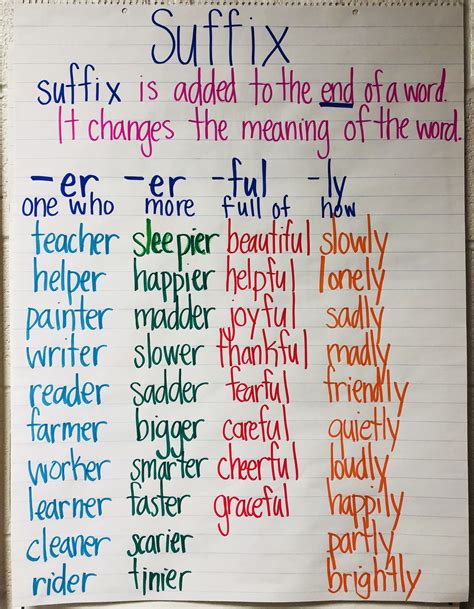 Suffix
suffix is added to the end of a word.
It changes the meaning of the word.
-er -er -ful -ly
one who more full of how
teacher sleepier beautiful slowly
helper happier helpful lonely
painter madder joyful sadly
writer slower thankful madly
reader sadder fearful friendly
farmer bigger careful quietly
worker smarter cheerful loudly
learner faster graceful happily
cleaner scarier partly
rider tinier brightly